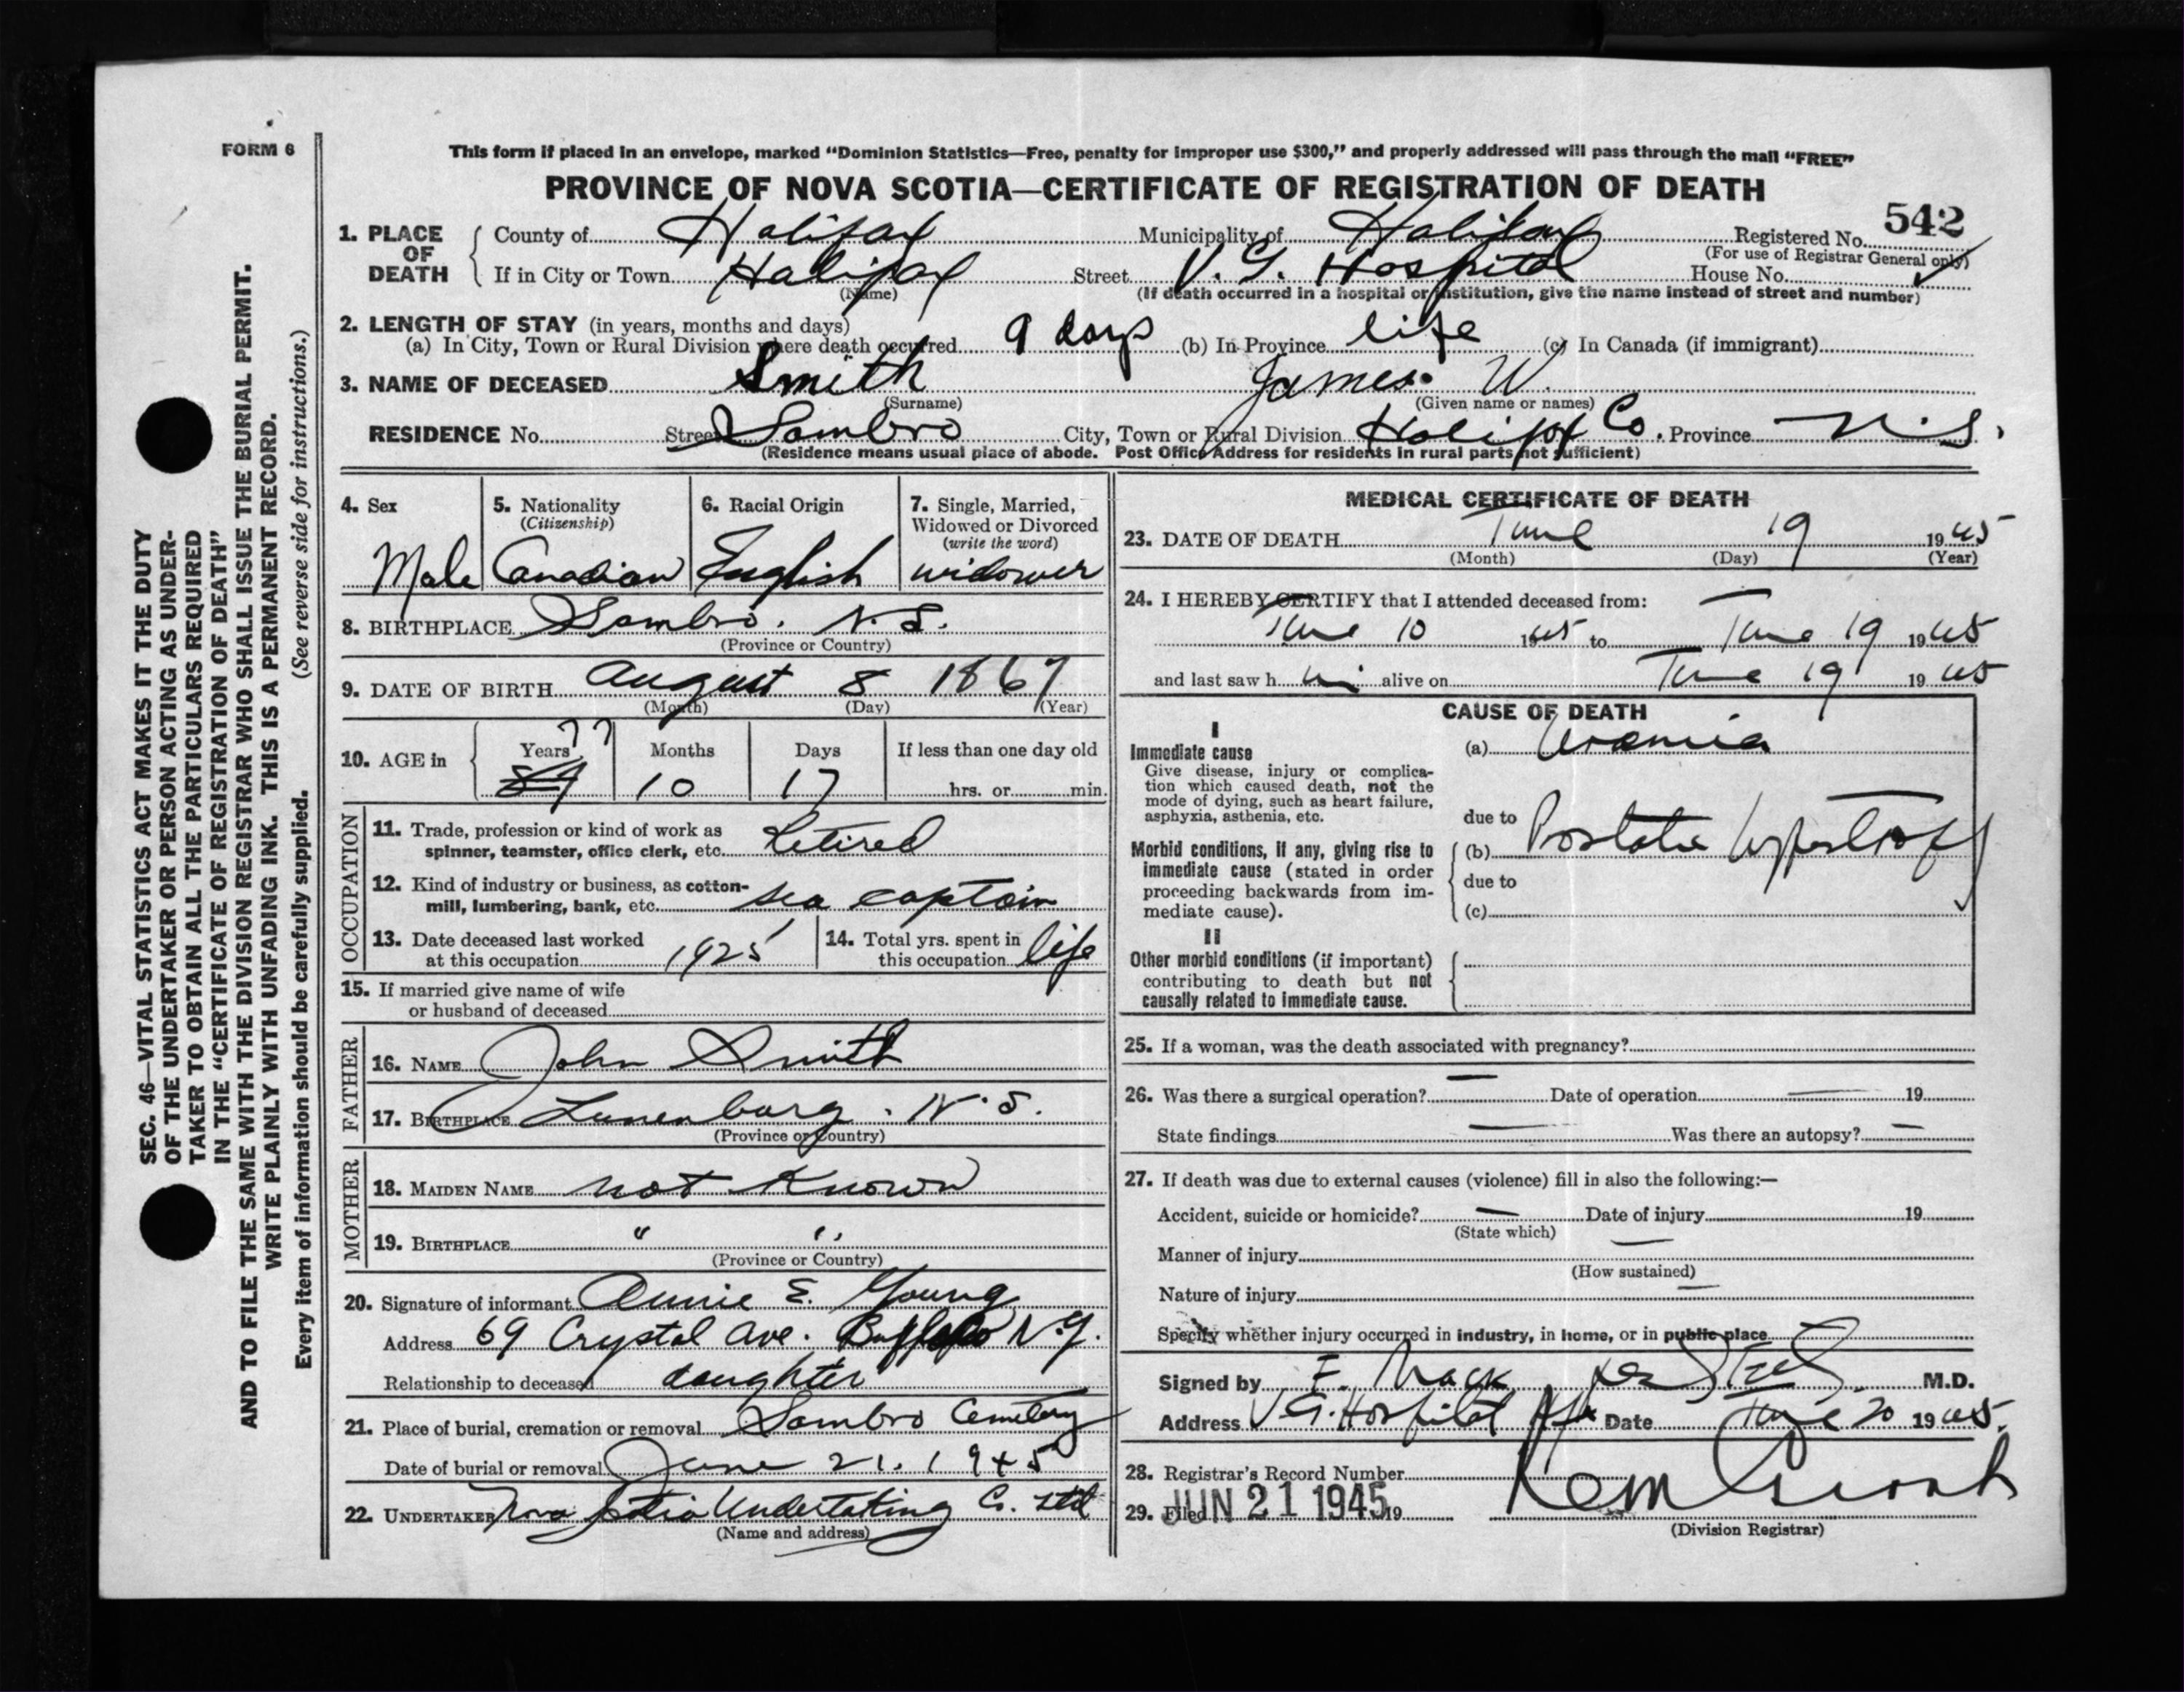 FORM 6
SEC. 46—VITAL STATISTICS ACT MAKES IT THE DUTY
OF THE UNDERTAKER OR PERSON ACTING AS UNDER-
TAKER TO OBTAIN ALL THE PARTICULARS REQUIRED
IN THE "CERTIFICATE OF REGISTRATION OF DEATH"
AND TO FILE THE SAME WITH THE DIVISION REGISTRAR WHO SHALL ISSUE THE BURIAL PERMIT.
WRITE PLAINLY WITH UNFADING INK. THIS IS A PERMANENT RECORD.
Every item of information should be carefully supplied. (See reverse side for instructions.)
This form if placed in an envelope, marked "Dominion Statistics—Free, penalty for improper use $300," and properly addressed will pass through the mail "FREE"
PROVINCE OF NOVA SCOTIA—CERTIFICATE OF REGISTRATION OF DEATH
1. PLACE OF DEATH County of Halifax Municipality of Halifax Registered No. 542
(For use of Registrar General only)
If in City or Town Halifax Street V. G. Hospital House No.
(Name) (If death occurred in a hospital or institution, give the name instead of street and number)
2. LENGTH OF STAY (in years, months and days)
(a) In City, Town or Rural Division where death occurred 9 days (b) In Province life (c) In Canada (if immigrant)
3. NAME OF DECEASED Smith James W.
(Surname) (Given name or names)
RESIDENCE No. Street Sambro City, Town or Rural Division Halifx Co. Province N.S.
(Residence means usual place of abode. Post Office Address for residents in rural parts not sufficient)
4. Sex Male
5. Nationality
(Citizenship)
Canadian
6. Racial Origin
English
7. Single, Married,
Widowed or Divorced
(write the word)
widower
8. BIRTHPLACE Sambro. N.S.
(Province or Country)
9. DATE OF BIRTH August 8 1867
(Month) (Day) (Year)
10. AGE in Years 77 Months 10 Days 17 If less than one day old
hrs. or min.
OCCUPATION
11. Trade, profession or kind of work as
spinner, teamster, office clerk, etc. Retired
12. Kind of industry or business, as cotton-
mill, lumbering, bank, etc. sea captain
13. Date deceased last worked
at this occupation 1925
14. Total yrs. spent in
this occupation life
15. If married give name of wife
or husband of deceased
FATHER
16. NAME John Smith
17. BIRTHPLACE Lunenburg. N.S.
(Province or Country)
MOTHER
18. MAIDEN NAME not Known
19. BIRTHPLACE " "
(Province or Country)
20. Signature of informant Annie E. Young
Address 69 Crystal Ave. Buffalo N.Y.
Relationship to deceased daughter
21. Place of burial, cremation or removal Sambro Cemetery
Date of burial or removal June 21. 1945
22. UNDERTAKER Nova Scotia Undertaking Co. Ltd
(Name and address)
MEDICAL CERTIFICATE OF DEATH
23. DATE OF DEATH June 19 1945
(Month) (Day) (Year)
24. I HEREBY CERTIFY that I attended deceased from:
June 10 1945 to June 19 1945
and last saw h im alive on June 19 1945
CAUSE OF DEATH
I
Immediate cause
Give disease, injury or complica-
tion which caused death, not the
mode of dying, such as heart failure,
asphyxia, asthenia, etc.
(a) Uremia
due to
Morbid conditions, if any, giving rise to
immediate cause (stated in order
proceeding backwards from im-
mediate cause).
(b) Prostatic hypertrophy
due to
(c)
II
Other morbid conditions (if important)
contributing to death but not
causally related to immediate cause.
25. If a woman, was the death associated with pregnancy?
26. Was there a surgical operation? — Date of operation — 19
State findings — Was there an autopsy? —
27. If death was due to external causes (violence) fill in also the following:—
Accident, suicide or homicide? — Date of injury 19
(State which)
Manner of injury —
(How sustained)
Nature of injury —
Specify whether injury occurred in industry, in home, or in public place
Signed by F. Mack M.D.
Address V.G. Hospital Hfx Date June 20 1945.
28. Registrar's Record Number
29. Filed JUN 21 1945 19
(Division Registrar)